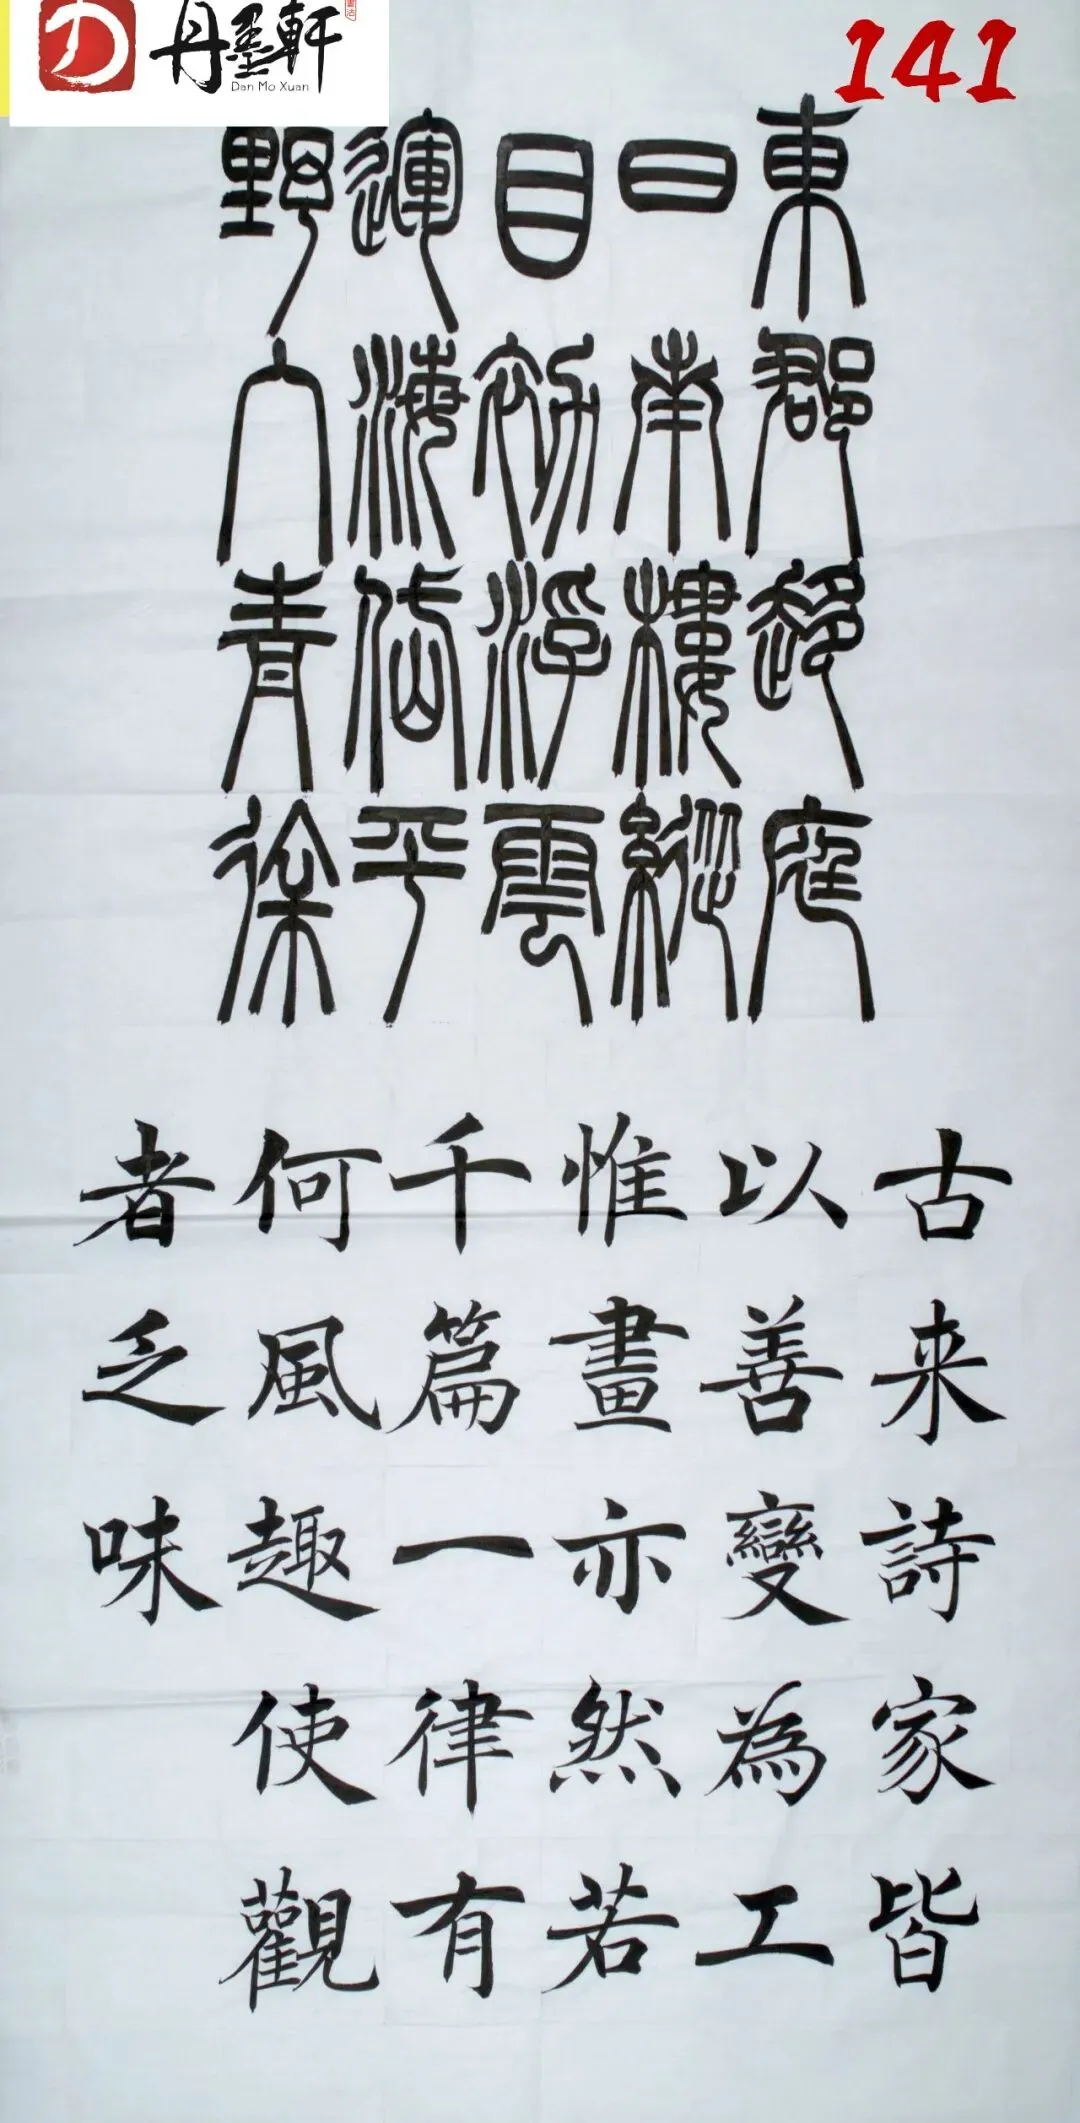 丹墨軒
Dan Mo Xuan
141
東郡趨庭
日南樓縱
目初浮雲
運海岱平
野入青徐
古来詩家皆
以善變為工
惟畫亦然若
千篇一律有
何風趣使觀
者乏味